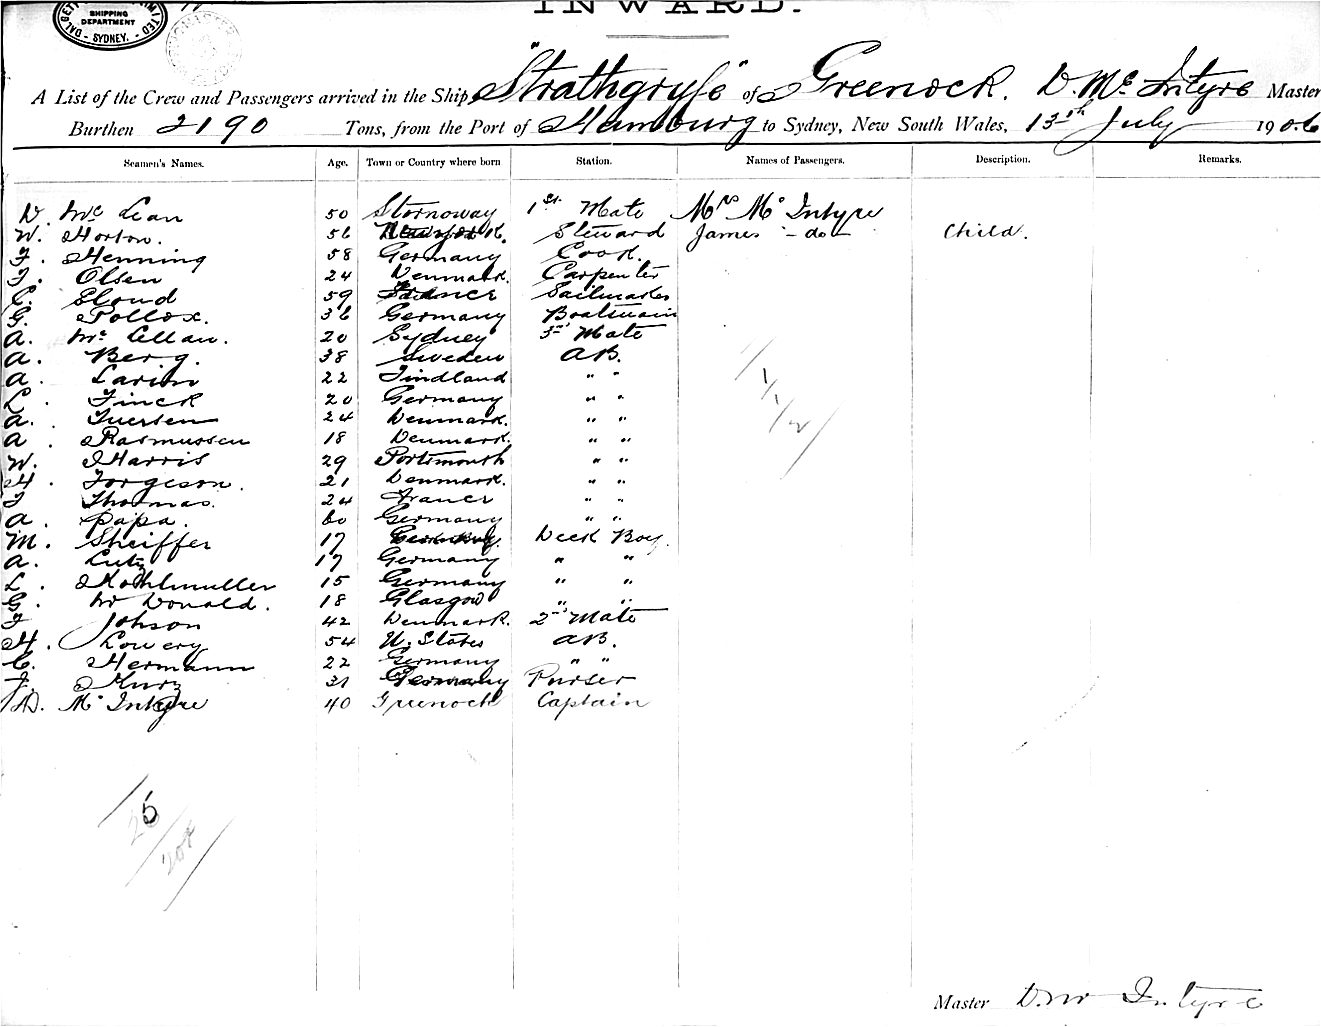 SHIPPING
DEPARTMENT
- SYDNEY. -
INWARD.
A List of the Crew and Passengers arrived in the Ship "Strathgryfe" of Greenock. D. Mc Intyre Master
Burthen 2190 Tons, from the Port of Hamburg to Sydney, New South Wales, 13th July 1906
Seamen's Names. Age. Town or Country where born Station. Names of Passengers. Description. Remarks.
D. Mc Lean 50 Stornoway 1st Mate Mrs Mc Intyre
W. Horton. 56 Steward James - do - Child.
F. Henning 58 Germany Cook.
J. Olsen 24 Denmark. Carpenter
C. Eloud 59 France Sailmaker
G. Pollox. 36 Germany Boatswain
A. Mc Lellan. 20 Sydney 3rd Mate
A. Berg. 38 Sweden AB.
A. Larin 22 Findland " "
L. Finck 20 Germany " "
A. Iuersen 24 Denmark. " "
A. Rasmussen 18 Denmark. " "
W. Harris 29 Portsmouth " "
H. Forgeson. 21 Denmark. " "
F Thomas. 24 France " "
A. Papa. 60 Germany " "
M. Sheiffer 17 Deck Boy.
A. Lutz 17 Germany " "
L. Kohlmuller 15 Germany " "
G. Mc Donald. 18 Glasgow " "
F Johson 42 Denmark. 2nd Mate
H. Lowery 54 U. States AB.
C. Hermann 22 Germany " "
J. Kurz 31 Germany Purser
D. Mc Intyre 40 Greenock Captain
Master D. Mc Intyre